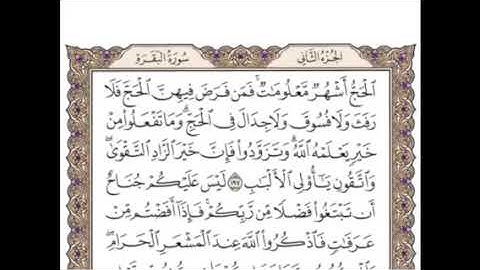 سُورَةُ البَقَرَةِ الجُزْءُ الثَّانِي
ٱلْحَجُّ أَشْهُرٌ مَّعْلُومَٰتٌ ۚ فَمَن فَرَضَ فِيهِنَّ ٱلْحَجَّ فَلَا
رَفَثَ وَلَا فُسُوقَ وَلَا جِدَالَ فِى ٱلْحَجِّ ۗ وَمَا تَفْعَلُوا۟ مِنْ
خَيْرٍ يَعْلَمْهُ ٱللَّهُ ۗ وَتَزَوَّدُوا۟ فَإِنَّ خَيْرَ ٱلزَّادِ ٱلتَّقْوَىٰ ۚ
وَٱتَّقُونِ يَٰٓأُو۟لِى ٱلْأَلْبَٰبِ ١٩٧ لَيْسَ عَلَيْكُمْ جُنَاحٌ
أَن تَبْتَغُوا۟ فَضْلًا مِّن رَّبِّكُمْ ۚ فَإِذَآ أَفَضْتُم مِّنْ
عَرَفَٰتٍ فَٱذْكُرُوا۟ ٱللَّهَ عِندَ ٱلْمَشْعَرِ ٱلْحَرَامِ ۖ